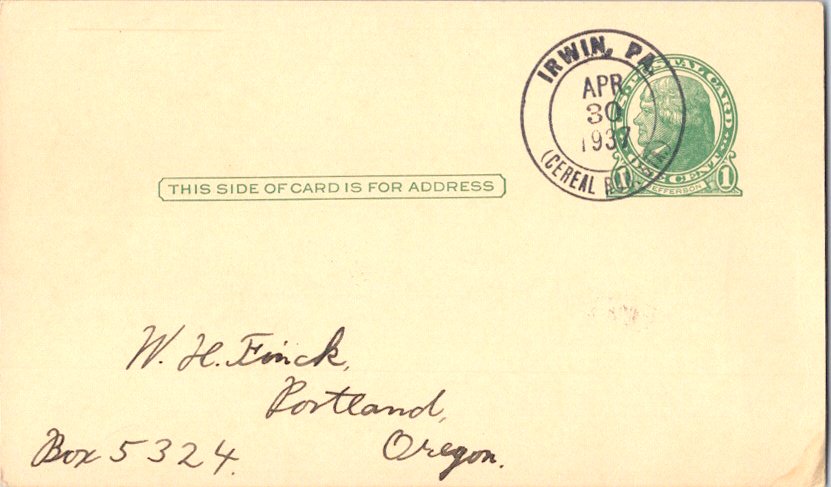 IRWIN, PA
APR
30
1937
(CEREAL
POSTAL CARD
ONE CENT
1 JEFFERSON 1
THIS SIDE OF CARD IS FOR ADDRESS
W. H. Finck,
Portland,
Box 5324. Oregon.